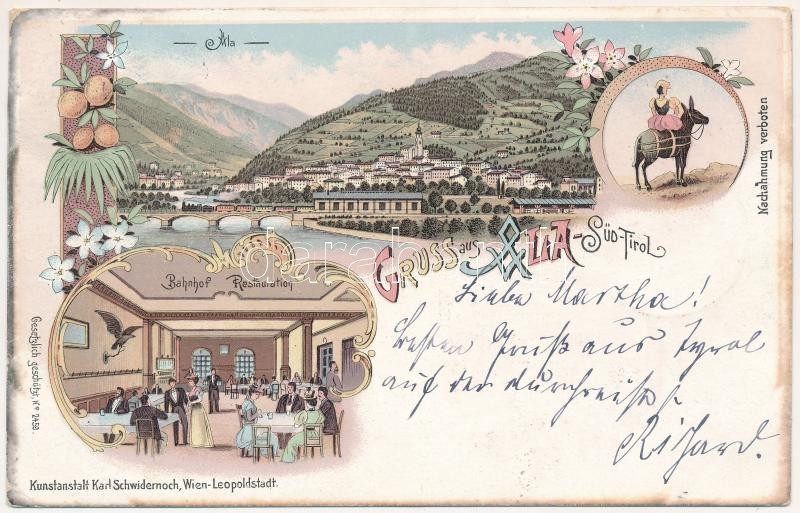 Ala
Nachahmung verboten
GRUSS aus ALA-SÜD-TIROL
Bahnhof Restauration
Liebe Martha!
Besten Gruß aus Tyrol
auf der durchreise!
Richard.
Gesetzlich geschützt, No 2450.
Kunstanstalt Karl Schwidernoch, Wien-Leopoldstadt.